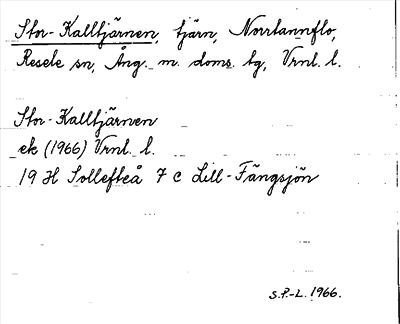 Stor-Kalltjärnen, tjärn, Norrtannflo,
Resele sn, Ång. m. doms. bg, Vrnl. l.
Stor-Kalltjärnen
ek (1966) Vrnl. l.
19 H Sollefteå 7 c Lill-Fängsjön
S.P.-L. 1966.